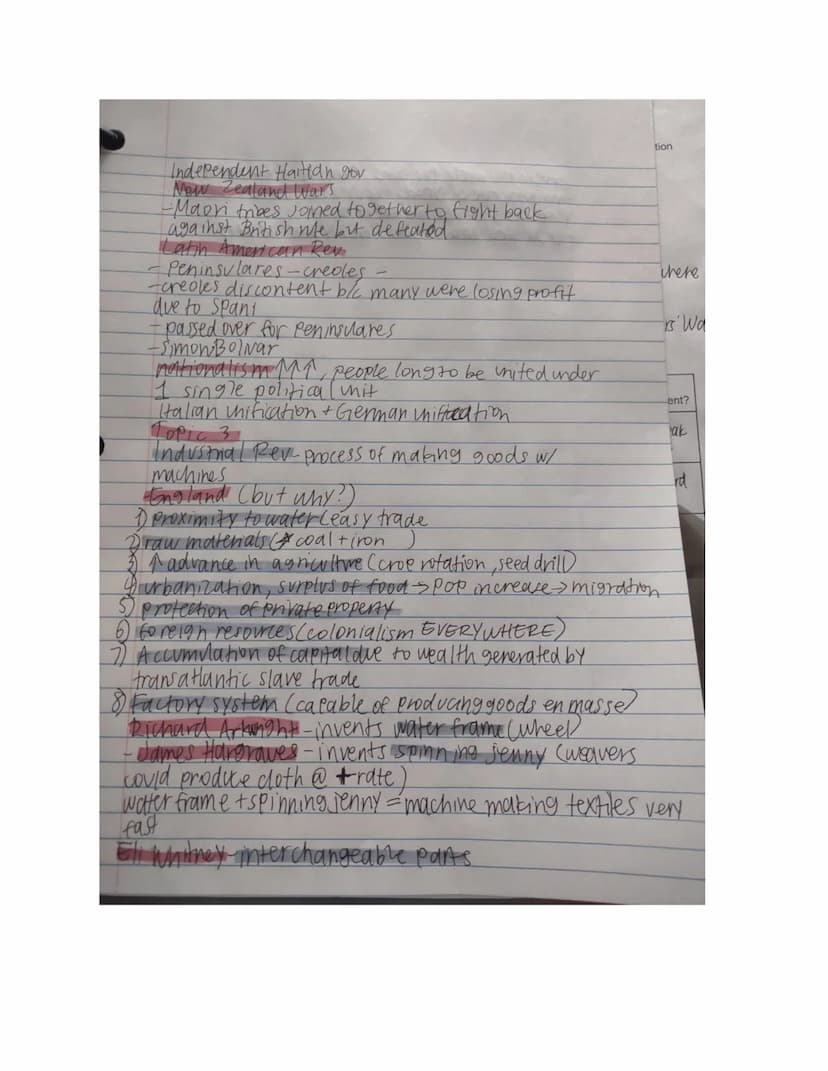 Independent Haitian gov
New Zealand Wars
-Maori tribes joined together to fight back
against British rule but defeated
Latin American Rev.
- Peninsulares - creoles -
-creoles discontent b/c many were losing profit
due to Spani
- passed over for Peninsulares
-Simon Bolivar
nationalism ↑↑↑, people long to be united under
1 single political unit
Italian unification + German unification
Topic 3
Industrial Rev- process of making goods w/
machines
-England (but why?)
1) proximity to water (easy trade
2) raw materials ( coal + iron )
3) ↑ advance in agriculture (crop rotation, seed drill)
4) urbanization, surplus of food → pop increase → migration
5) protection of private property
6) foreign resources (colonialism EVERYWHERE)
7) Accumulation of capital due to wealth generated by
transatlantic slave trade
8) Factory system (capable of producing goods en masse)
Richard Arkwright - invents water frame (wheel)
- James Hargraves - invents spinning jenny (weavers
could produce cloth @ + rate)
water frame + spinning jenny = machine making textiles very
fast
Eli Whitney - interchangeable parts
tion
where
rs' Wa
ent?
ak
rd